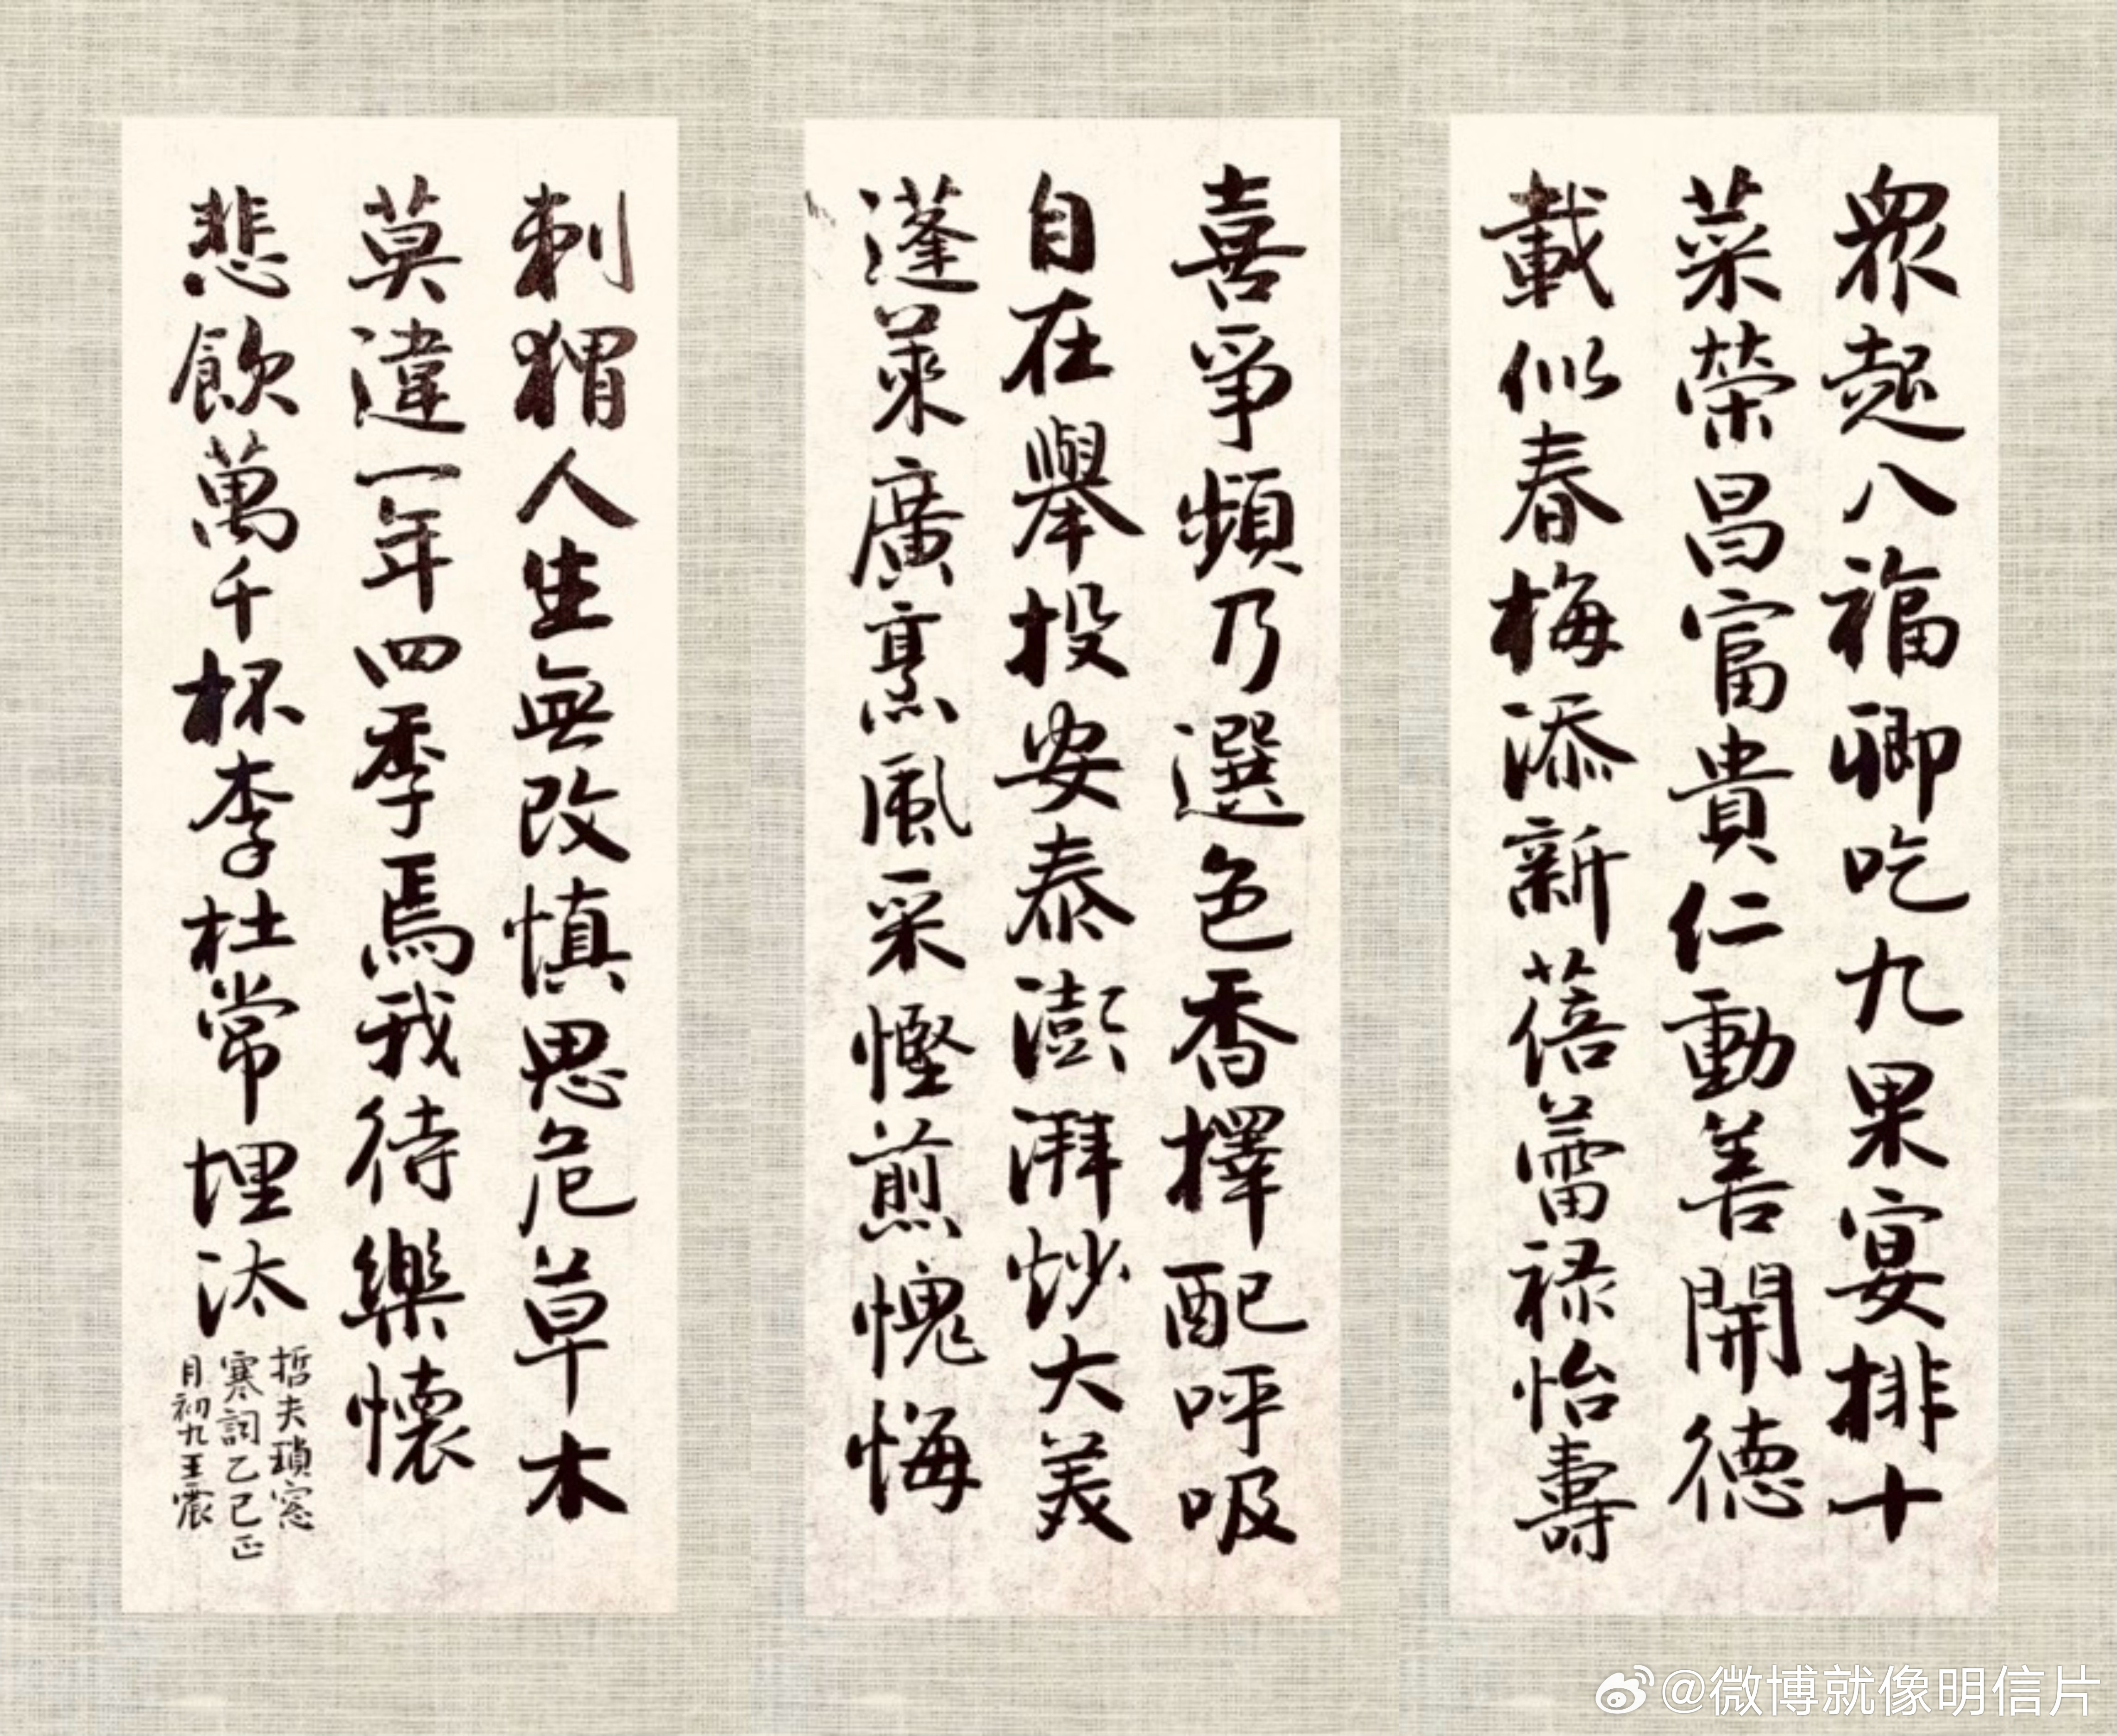 眾起八福卿吃九果宴排十
菜榮昌富貴仁動善開德
載似春梅添新蓓蕾祿怡壽
喜爭頻乃選色香擇配呼吸
自在舉投安泰澎湃炒大美
蓬萊廣烹風采慳煎愧悔
刺猬人生無改慎思危草木
莫違一年四季焉我待樂懷
悲飲萬千杯李杜常埋汰
哲夫瑣窓
寒詞乙巳正
月初九王震
@微博就像明信片